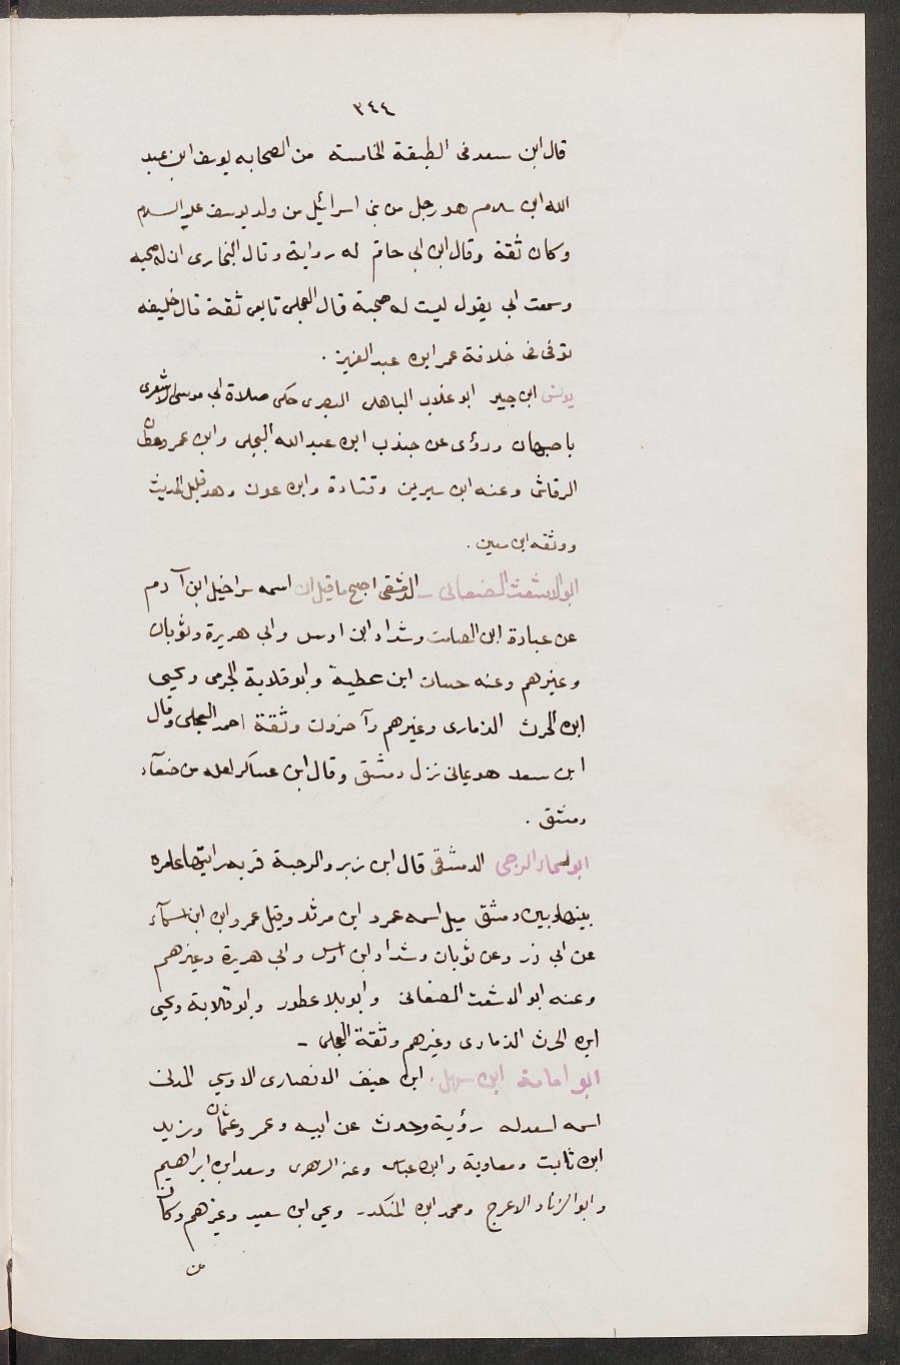 ٣٤٤
قال ابن سعد فى الطبقة الخامسة من الصحابه يوسف ابن عبد
الله ابن سلام هو رجل من بنى اسرائيل من ولد يوسف عليه السلام
وكان ثقة وقال ابن ابى حاتم له رواية وقال البخارى ان له صحبه
وسمعت ابى يقول ليست له صحبة قال العجلى تابعى ثقة قال خليفه
توفى فى خلافة عمر ابن عبد العزيز .
يونس ابن جبير ابو غلاب الباهلى البصرى حكى صلاة ابى موسى الاشعرى
باصبهان وروى عن جندب ابن عبد الله البجلى وابن عمر وحطان
الرقاشى وعنه ابن سيرين وقتادة وابن عون وهو قليل الحديث
ووثقه ابن معين .
ابو الاشعث الصنعانى - الدمشقى اصح ما قيل ان اسمه سراحيل ابن آدم
عن عبادة ابن الصامت وشداد ابن اوس وابى هريرة وثوبان
وغيرهم وعنه حسان ابن عطية وابو قلابة الجرمى ويحيى
ابن الحرث الذمارى وغيرهم وآخرون وثقة احمد العجلى وقال
ابن سعد هو يمانى نزل دمشق وقال ابن عساكر لعله من صنعآء
دمشق .
ابو اسماء الرحبى الدمشقى قال ابن زبر والرحبة قريه رايتها عامره
بينها وبين دمشق ميل اسمه عمرو ابن مرثد وقيل عمرو ابن اسمآء
عن ابى ذر وعن ثوبان وشداد ابن اوس وابى هريرة وغيرهم
وعنه ابو الاشعث الصنعانى وابو وابو قلابة ويحيى
ابن الحرث الذمارى وغيرهم وثقة العجلى -
ابو امامة ابن سهل . ابن حنيف الانصارى الاوسى المدنى
اسمه اسعد له رؤية وحدث عن ابيه وعمر وعثمان وزيد
ابن ثابت ومعاوية وابن عباس وعنه الزهرى وسعد ابن ابراهيم
وابو الزناد الاعرج ومحمد ابن المنكدر ويحيى ابن سعيد وغيرهم وكان
من